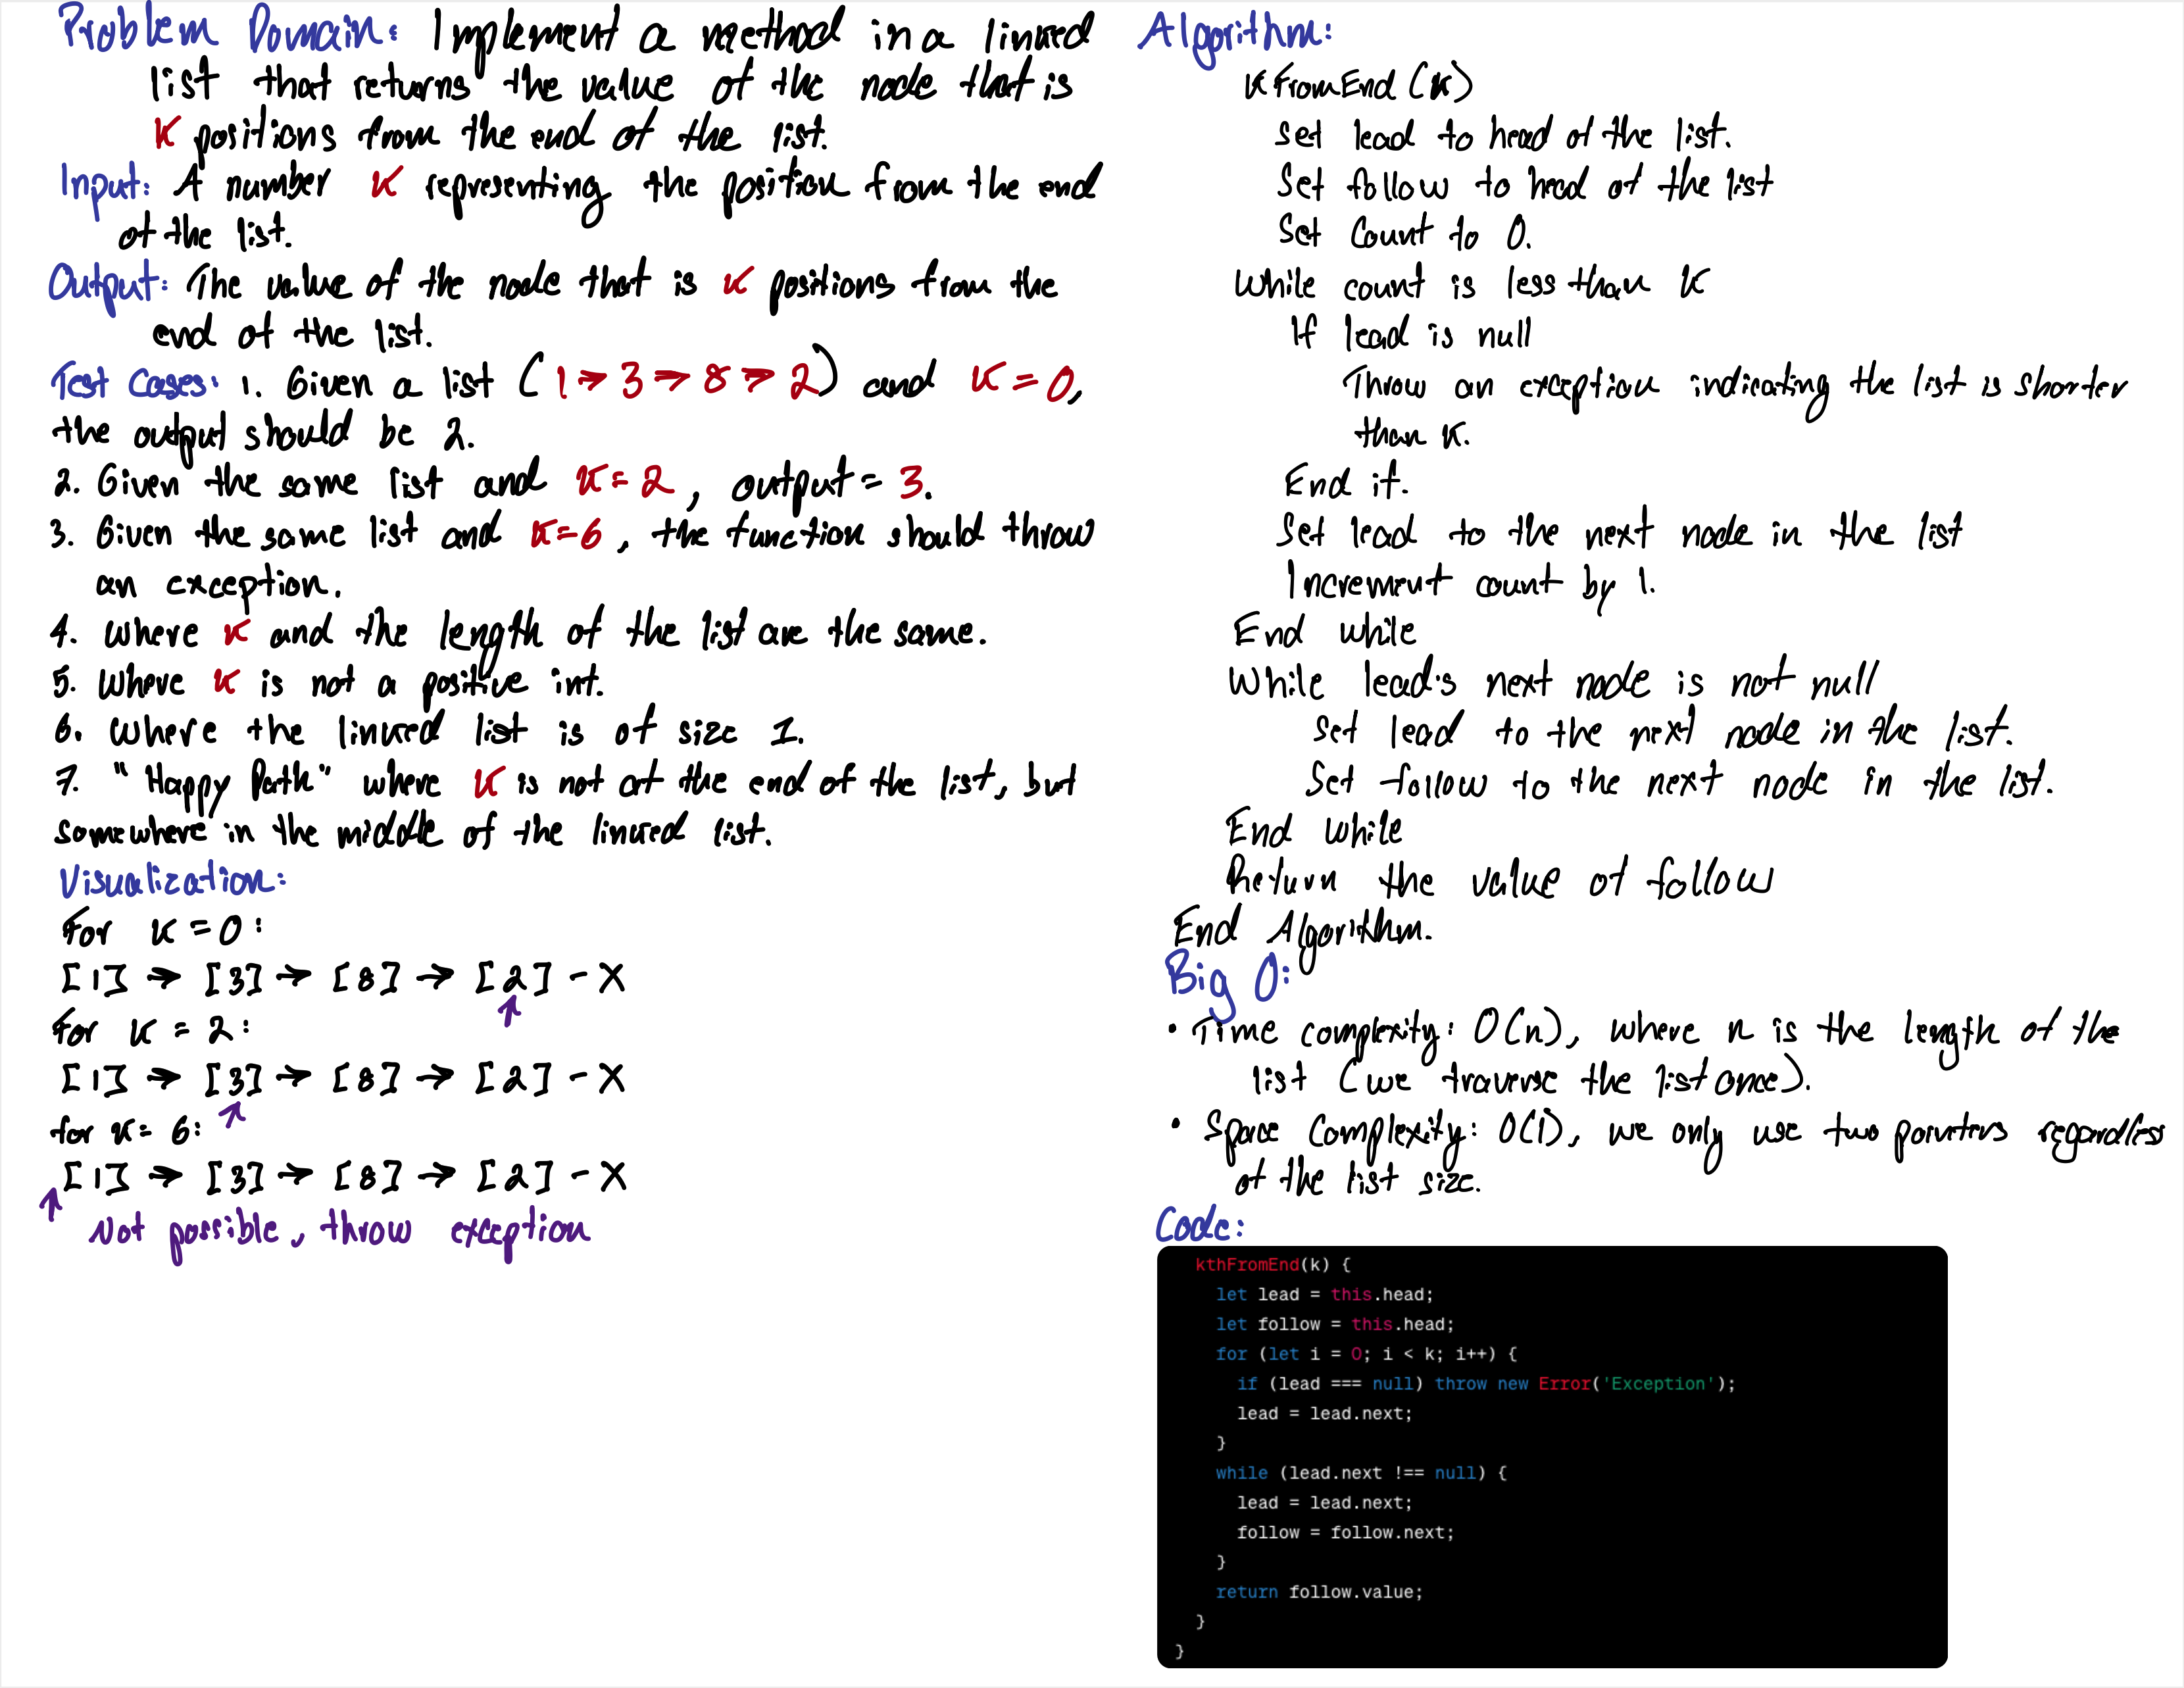 Problem Domain: Implement a method in a linked
list that returns the value of the node that is
K positions from the end of the list.
Input: A number K representing the position from the end
of the list.
Output: The value of the node that is K positions from the
end of the list.
Test Cases: 1. Given a list (1 → 3 → 8 → 2) and K = 0,
the output should be 2.
2. Given the same list and K = 2, output = 3.
3. Given the same list and K = 6, the function should throw
an exception.
4. Where K and the length of the list are the same.
5. Where K is not a positive int.
6. Where the linked list is of size 1.
7. "Happy Path" where K is not at the end of the list, but
somewhere in the middle of the linked list.
Visualization:
For K = 0:
[1] → [3] → [8] → [2] - X
For K = 2:
[1] → [3] → [8] → [2] - X
for K = 6:
[1] → [3] → [8] → [2] - X
Not possible, throw exception
Algorithm:
KFromEnd (K)
Set lead to head of the list.
Set follow to head of the list
Set Count to 0.
While count is less than K
If lead is null
Throw an exception indicating the list is shorter
than K.
End if.
Set lead to the next node in the list
Increment count by 1.
End while
While lead's next node is not null
Set lead to the next node in the list.
Set follow to the next node in the list.
End while
Return the value of follow
End Algorithm.
Big O:
• Time complexity: O(n), where n is the length of the
list (we traverse the list once).
• Space Complexity: O(1), we only use two pointers regardless
of the list size.
Code:
kthFromEnd(k) {
let lead = this.head;
let follow = this.head;
for (let i = 0; i < k; i++) {
if (lead === null) throw new Error('Exception');
lead = lead.next;
}
while (lead.next !== null) {
lead = lead.next;
follow = follow.next;
}
return follow.value;
}
}